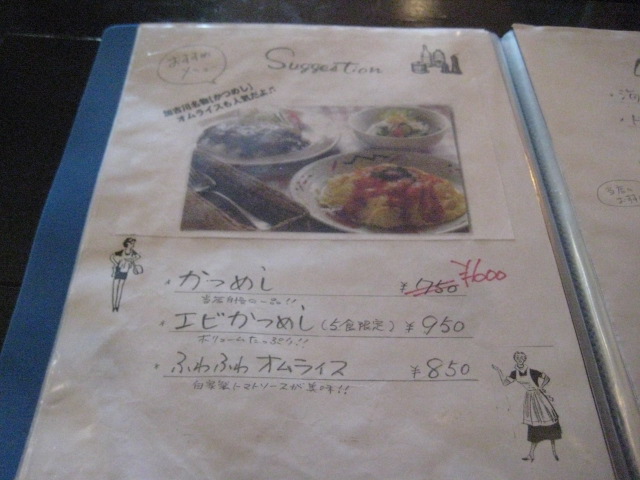 おすすめ
Suggestion
加古川名物(かつめし)
オムライスも人気だよ!!
・かつめし ¥750 ¥600
・エビかつめし(5食限定) ¥950
ボリュームたっぷり!!
・ふわふわ オムライス ¥850
自家製トマトソースが美味!!